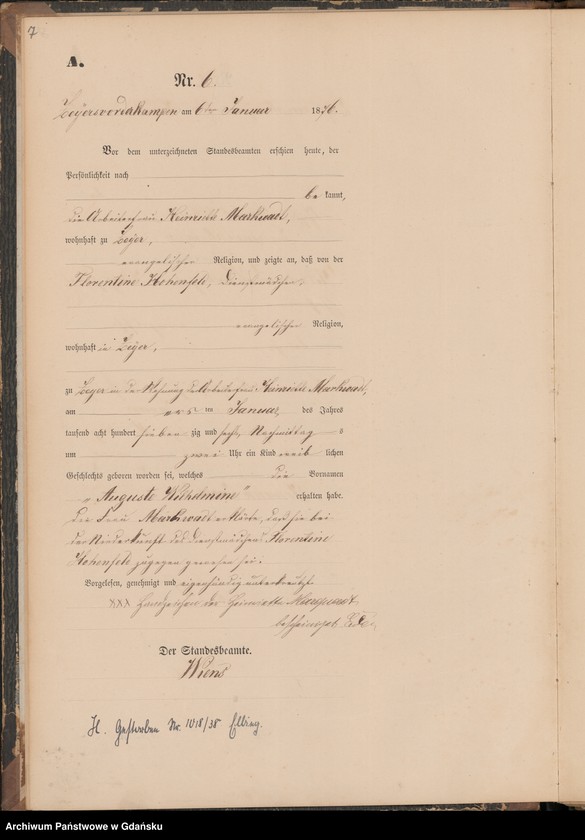 7
A.
Nr. 6.
Zeyersvorderkampen am 6ten Januar 1876.
Vor dem unterzeichneten Standesbeamten erschien heute, der
Persönlichkeit nach
bekannt,
die Arbeiterfrau Markwast,
wohnhaft zu Zeyer,
evangelischer Religion, und zeigte an, daß von der
Florentine Hohenfeld, Dienstmädchen,
evangelischer Religion,
wohnhaft in Zeyer,
zu Zeyer in der Wohnung der Arbeiterfrau Markwast,
am ten Januar des Jahres
tausend acht hundert sieben zig und sechs, Nachmittag s
um zwei Uhr ein Kind weib lichen
Geschlechts geboren worden sei, welches die Vornamen
„Auguste Wilhelmine" erhalten habe.
Die Frau Markwast erklärte, daß sie bei
der Niederkunft des Dienstmädchens Florentine
Hohenfeld zugegen gewesen sei.
Vorgelesen, genehmigt und eigenhändig unterkreuzt
XXX Handzeichen der Henriette
bescheinigt
Der Standesbeamte.
Wiens
H. Gestorben Nr. 1018/38 Elbing.
Archiwum Państwowe w Gdańsku